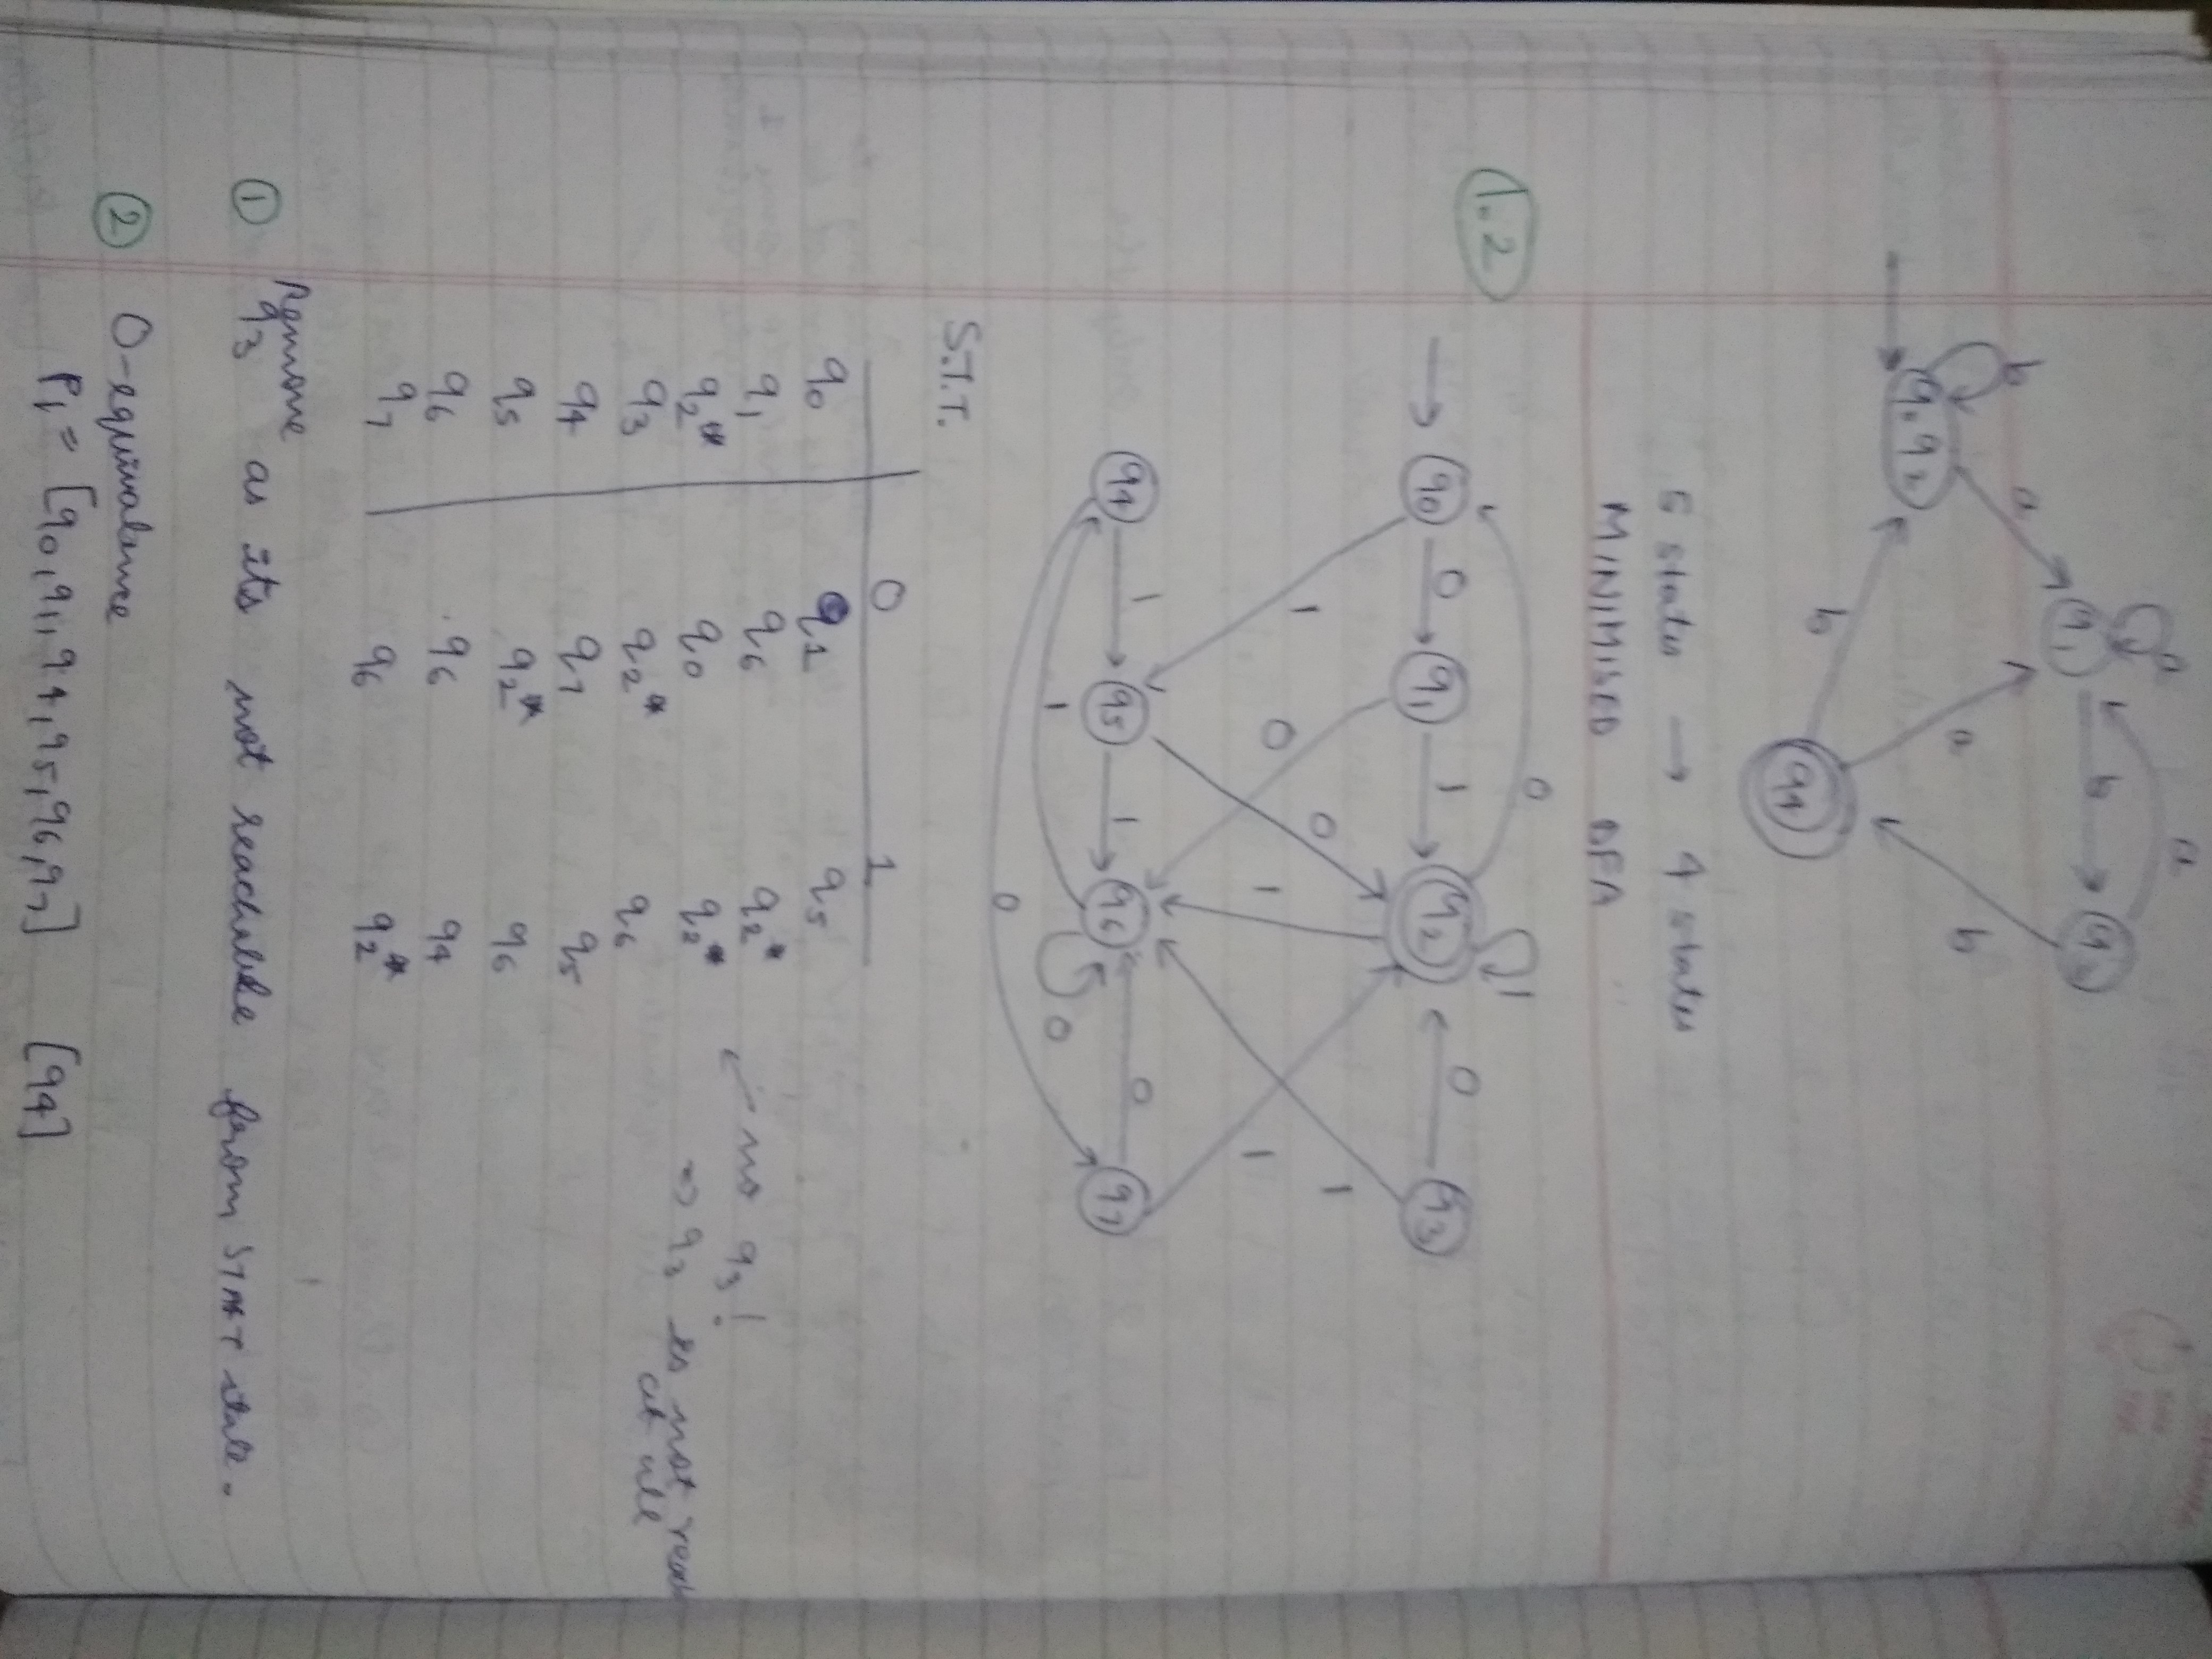 b
a
a
a
q0 q2
q1
b
q3
b
a
b
q4
5 states → 4 states
MINIMISED DFA
1.2
0
1
q0
0
q1
1
q2
0
q3
1
0
0
1
1
1
q4
1
q5
1
q6
0
q7
1
0
0
S.T.T.
0 1
q0 q1 q5
q1 q6 q2*
q2* q0 q2*
q3 q2* q6
q4 q7 q5
q5 q2* q6
q6 q6 q4
q7 q6 q2*
← no q3!
⇒ q3 is not reach
at all
① Remove
q3 as its not reachable from START state.
② 0-equivalence
P1 = [q0, q1, q4, q5, q6, q7] [q4]